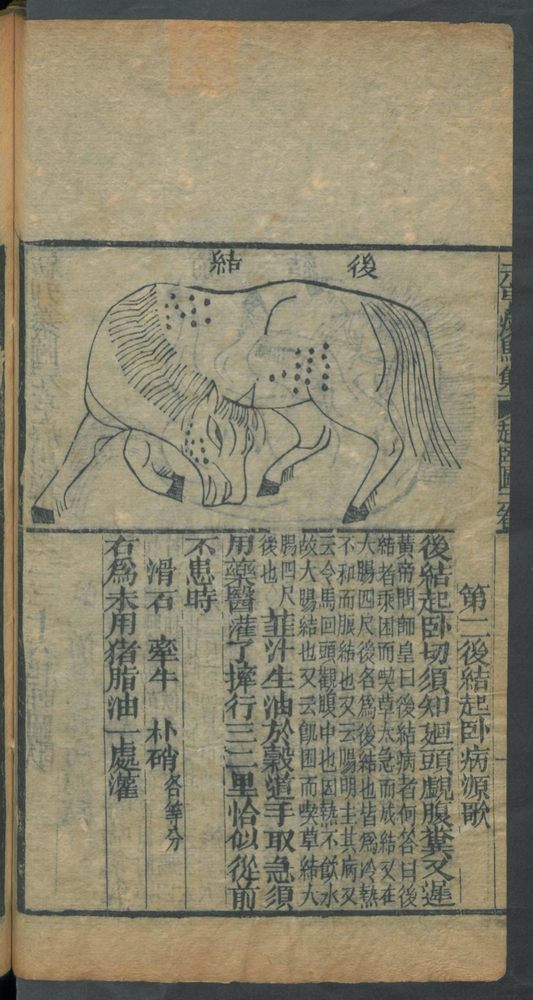 後
結
第二後結起卧病源歌
後結起卧切須知廻頭覷腹糞又遲
黃帝問師皇曰後結病者何答曰後
結者乘困而喫草太急而成結又在
大腸四尺後名爲後結也皆爲冷熱
不和而脹結也又云陽明主其病又
云令馬回頭觀腹中也因熱不飲水
故大腸結也又云飢困而喫草結大
腸四尺
後也
韮汁生油於穀道手取急須
用藥醫灌了擰行三二里恰似從前
不患時
滑石 牽牛 朴硝各等分
右爲末用猪脂油一處灌